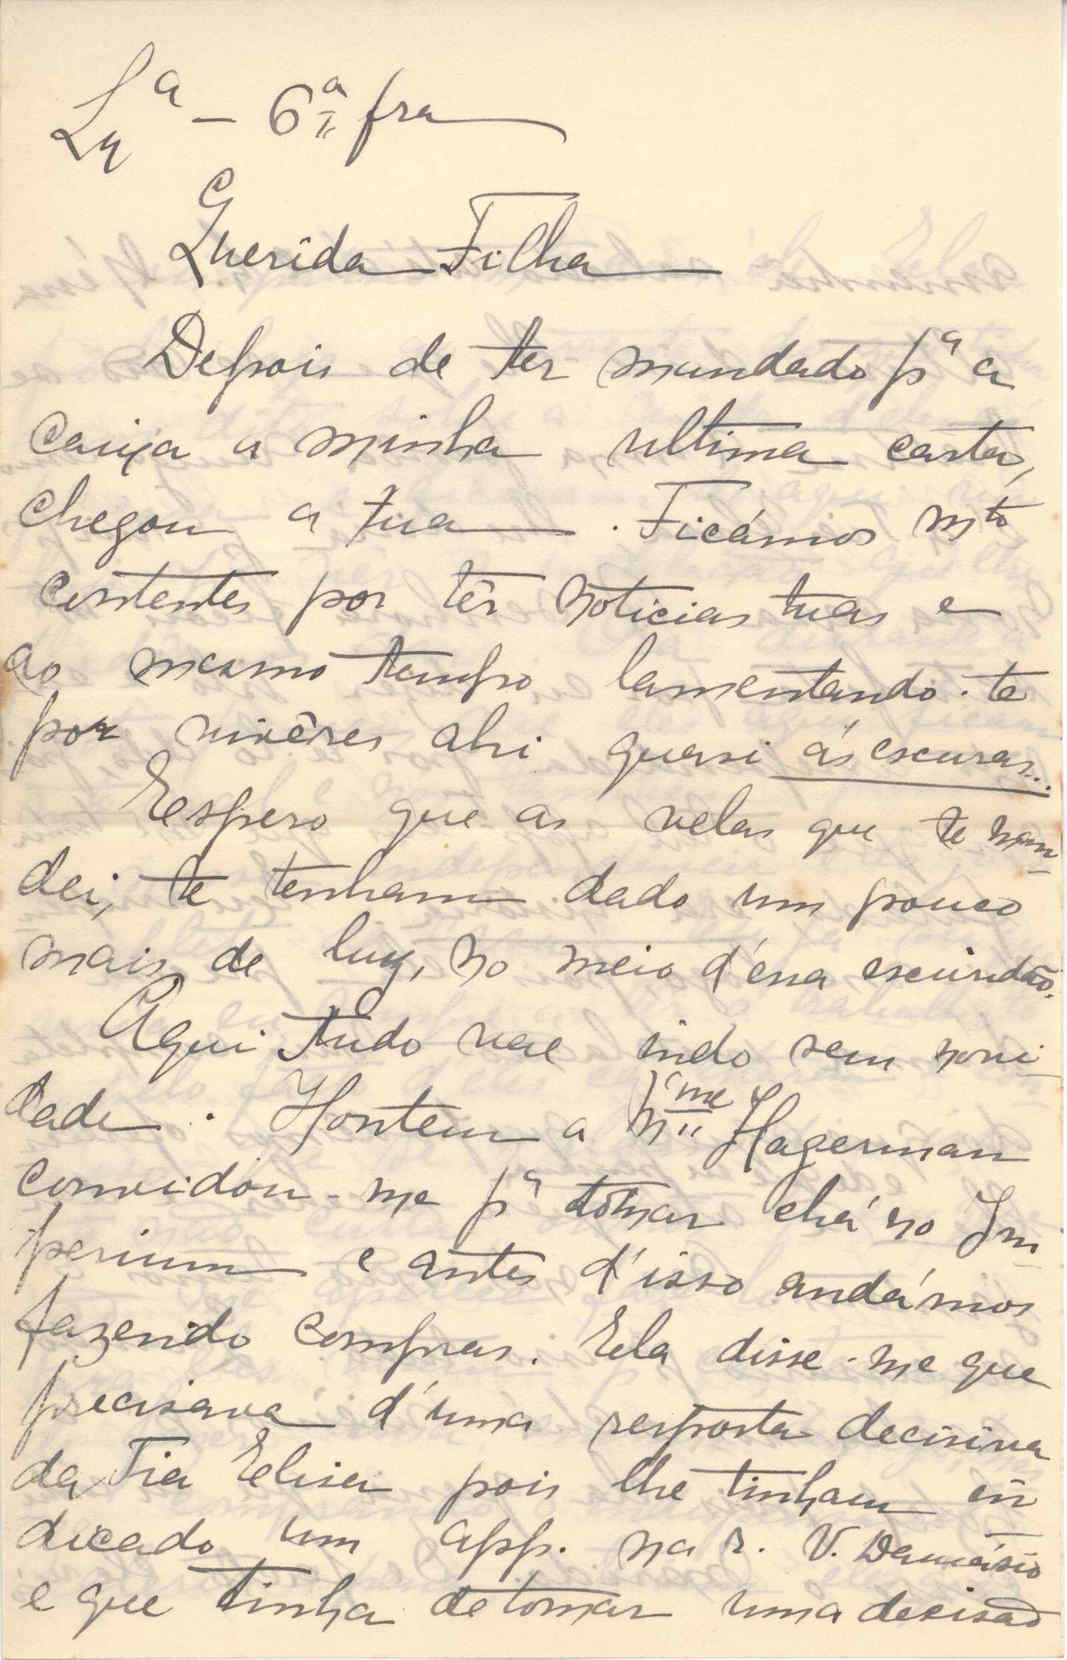 Lxª – 6ª fra
Querida Filha
Depois de ter mandado pª a
caixa a minha ultima carta,
chegou a tua. Ficámos mto
contentes por têr noticias tuas e
ao mesmo tempo lamentando-te
por vivêres ahi quasi ás escuras..
Espero que as velas que te man-
dei, te tenham dado um pouco
mais de luz, no meio d'essa escuridão.
Aqui tudo vae indo sem novi-
dade. Hontem a Mme Hagerman
convidou-me pª tomar chá no Im-
perium e antes d'isso andámos
fazendo compras. Ela disse-me que
precisava d'uma resposta decisiva
da Tia Elisa pois lhe tinham in-
dicado um app. na r. V. Damásio
e que tinha de tomar uma decisão